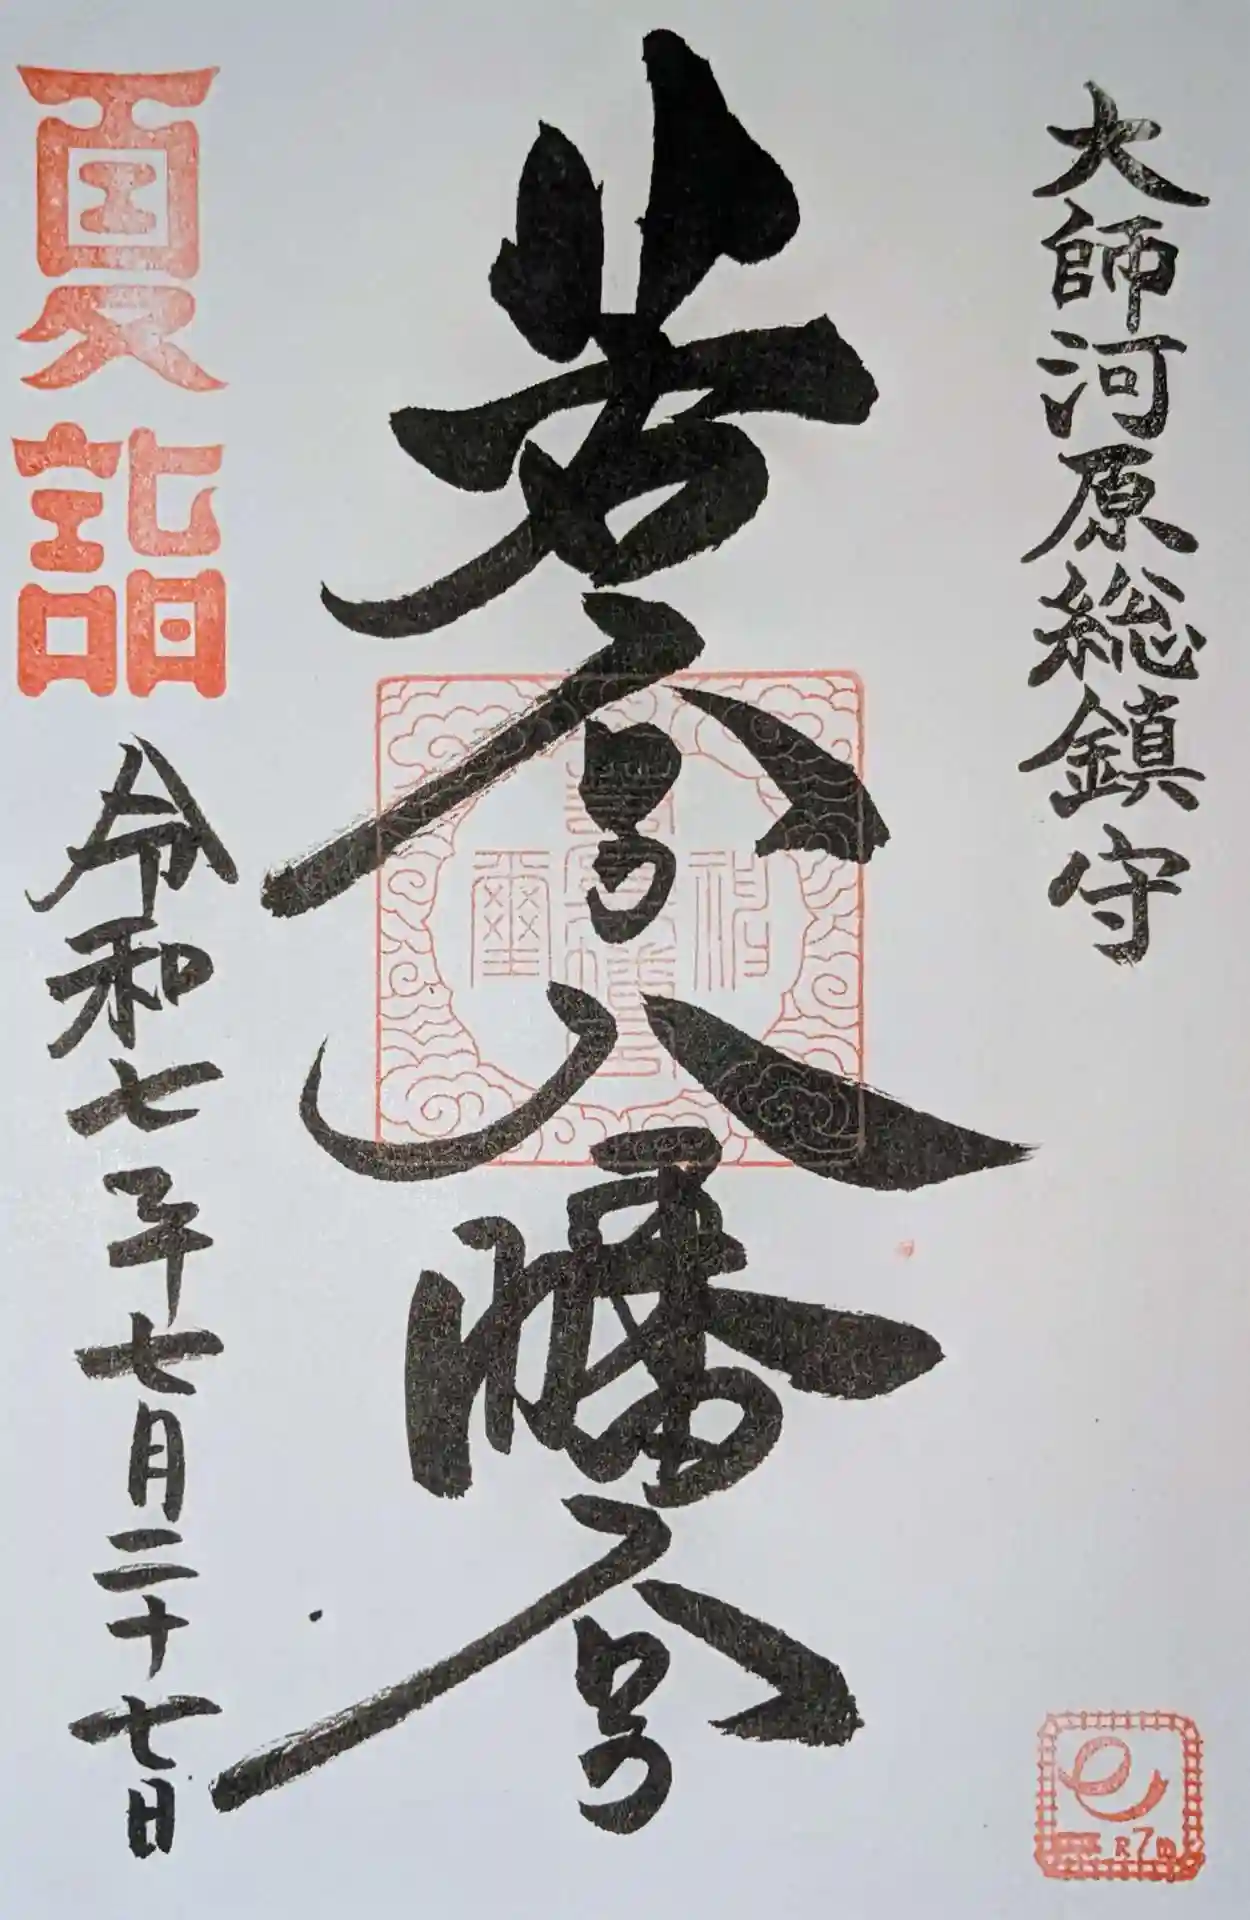 大師河原総鎮守
若宮八幡宮
夏詣
令和七年七月二十七日
R7